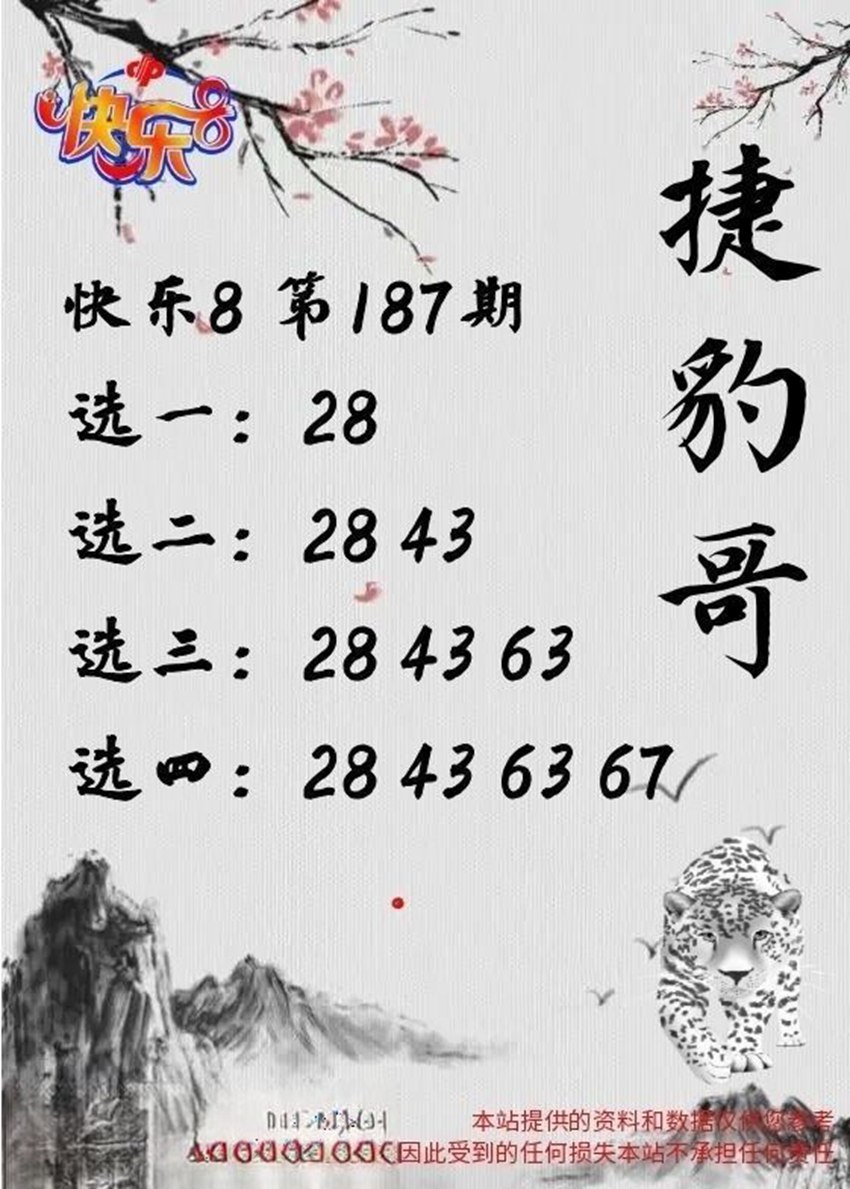 快乐8
捷豹哥
快乐8 第187期
选一：28
选二：28 43
选三：28 43 63
选四：28 43 63 67
本站提供的资料和数据仅供您参考
因此受到的任何损失本站不承担任何责任